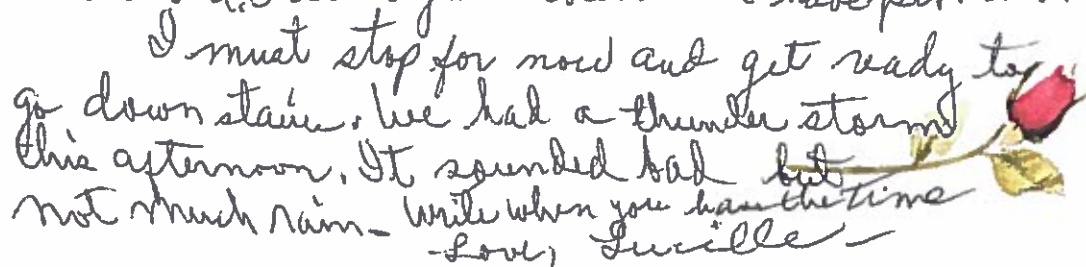 I must stop for now and get ready to
go down stairs. We had a thunder storm
this afternoon. It sounded bad but
not much rain - Write when you have the time
-Love, Lucille-